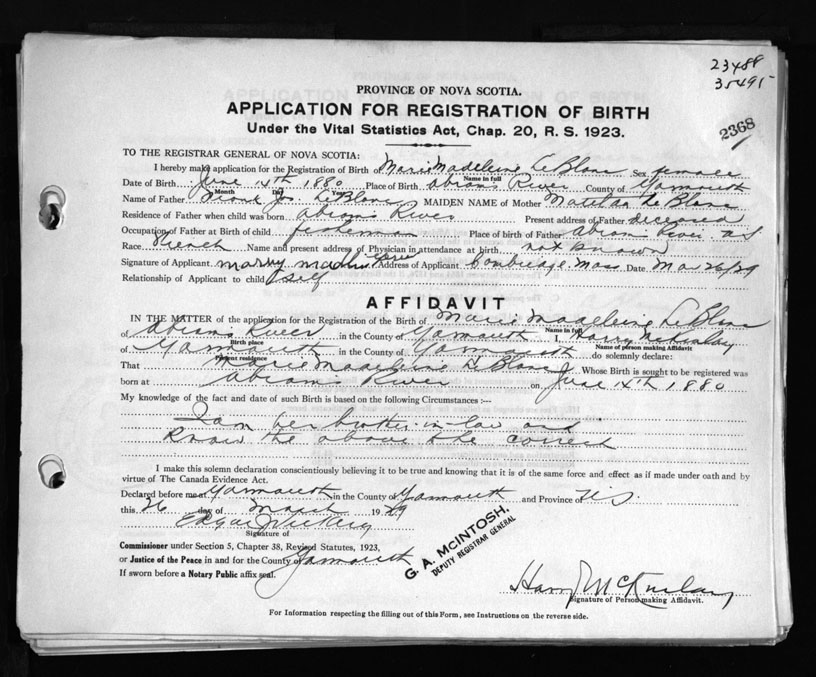 23488
35495
2368
PROVINCE OF NOVA SCOTIA.
APPLICATION FOR REGISTRATION OF BIRTH
Under the Vital Statistics Act, Chap. 20, R. S. 1923.
TO THE REGISTRAR GENERAL OF NOVA SCOTIA:
I hereby make application for the Registration of Birth of Marie Madeleine Le Blanc Sex female
Name in full
Date of Birth June 14th 1880 Place of Birth Abrams River County of Yarmouth
Month Day Year
Name of Father Jos LeBlanc MAIDEN NAME of Mother Matilda Le Blanc
Residence of Father when child was born Abrams River Present address of Father deceased
Occupation of Father at Birth of child fisherman Place of birth of Father Abrams River N.S
Race French Name and present address of Physician in attendance at birth not known
Signature of Applicant Address of Applicant Cambridge Mass Date Mar 26/29
Relationship of Applicant to child self
AFFIDAVIT
IN THE MATTER of the application for the Registration of the Birth of Marie Madeleine Le Blanc
Name in full
of Abrams River in the County of Yarmouth I, Harry
Birth place Name of person making Affidavit
of Yarmouth in the County of Yarmouth do solemnly declare:
Present residence
That Marie Madeleine Le Blanc Whose Birth is sought to be registered was
born at Abrams River on June 14th 1880
My knowledge of the fact and date of such Birth is based on the following Circumstances :—
I am her brother-in-law and
know the above to be correct
I make this solemn declaration conscientiously believing it to be true and knowing that it is of the same force and effect as if made under oath and by
virtue of The Canada Evidence Act.
Declared before me at Yarmouth in the County of Yarmouth and Province of N.S.
this 26 day of March 1929
Edgar
Signature of
Commissioner under Section 5, Chapter 38, Revised Statutes, 1923,
or Justice of the Peace in and for the County of Yarmouth
If sworn before a Notary Public affix seal.
G. A. MCINTOSH.
DEPUTY REGISTRAR GENERAL
Harry
Signature of Person making Affidavit.
For Information respecting the filling out of this Form, see Instructions on the reverse side.